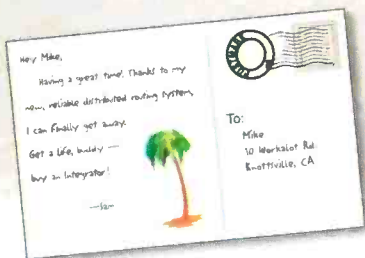 Hey Mike,
Having a great time! Thanks to my
new, reliable distributed routing system,
I can finally get away.
Get a life, buddy —
buy an Integrator!
—Sam
To:
Mike
10 Workalot Rd.
Knottsville, CA